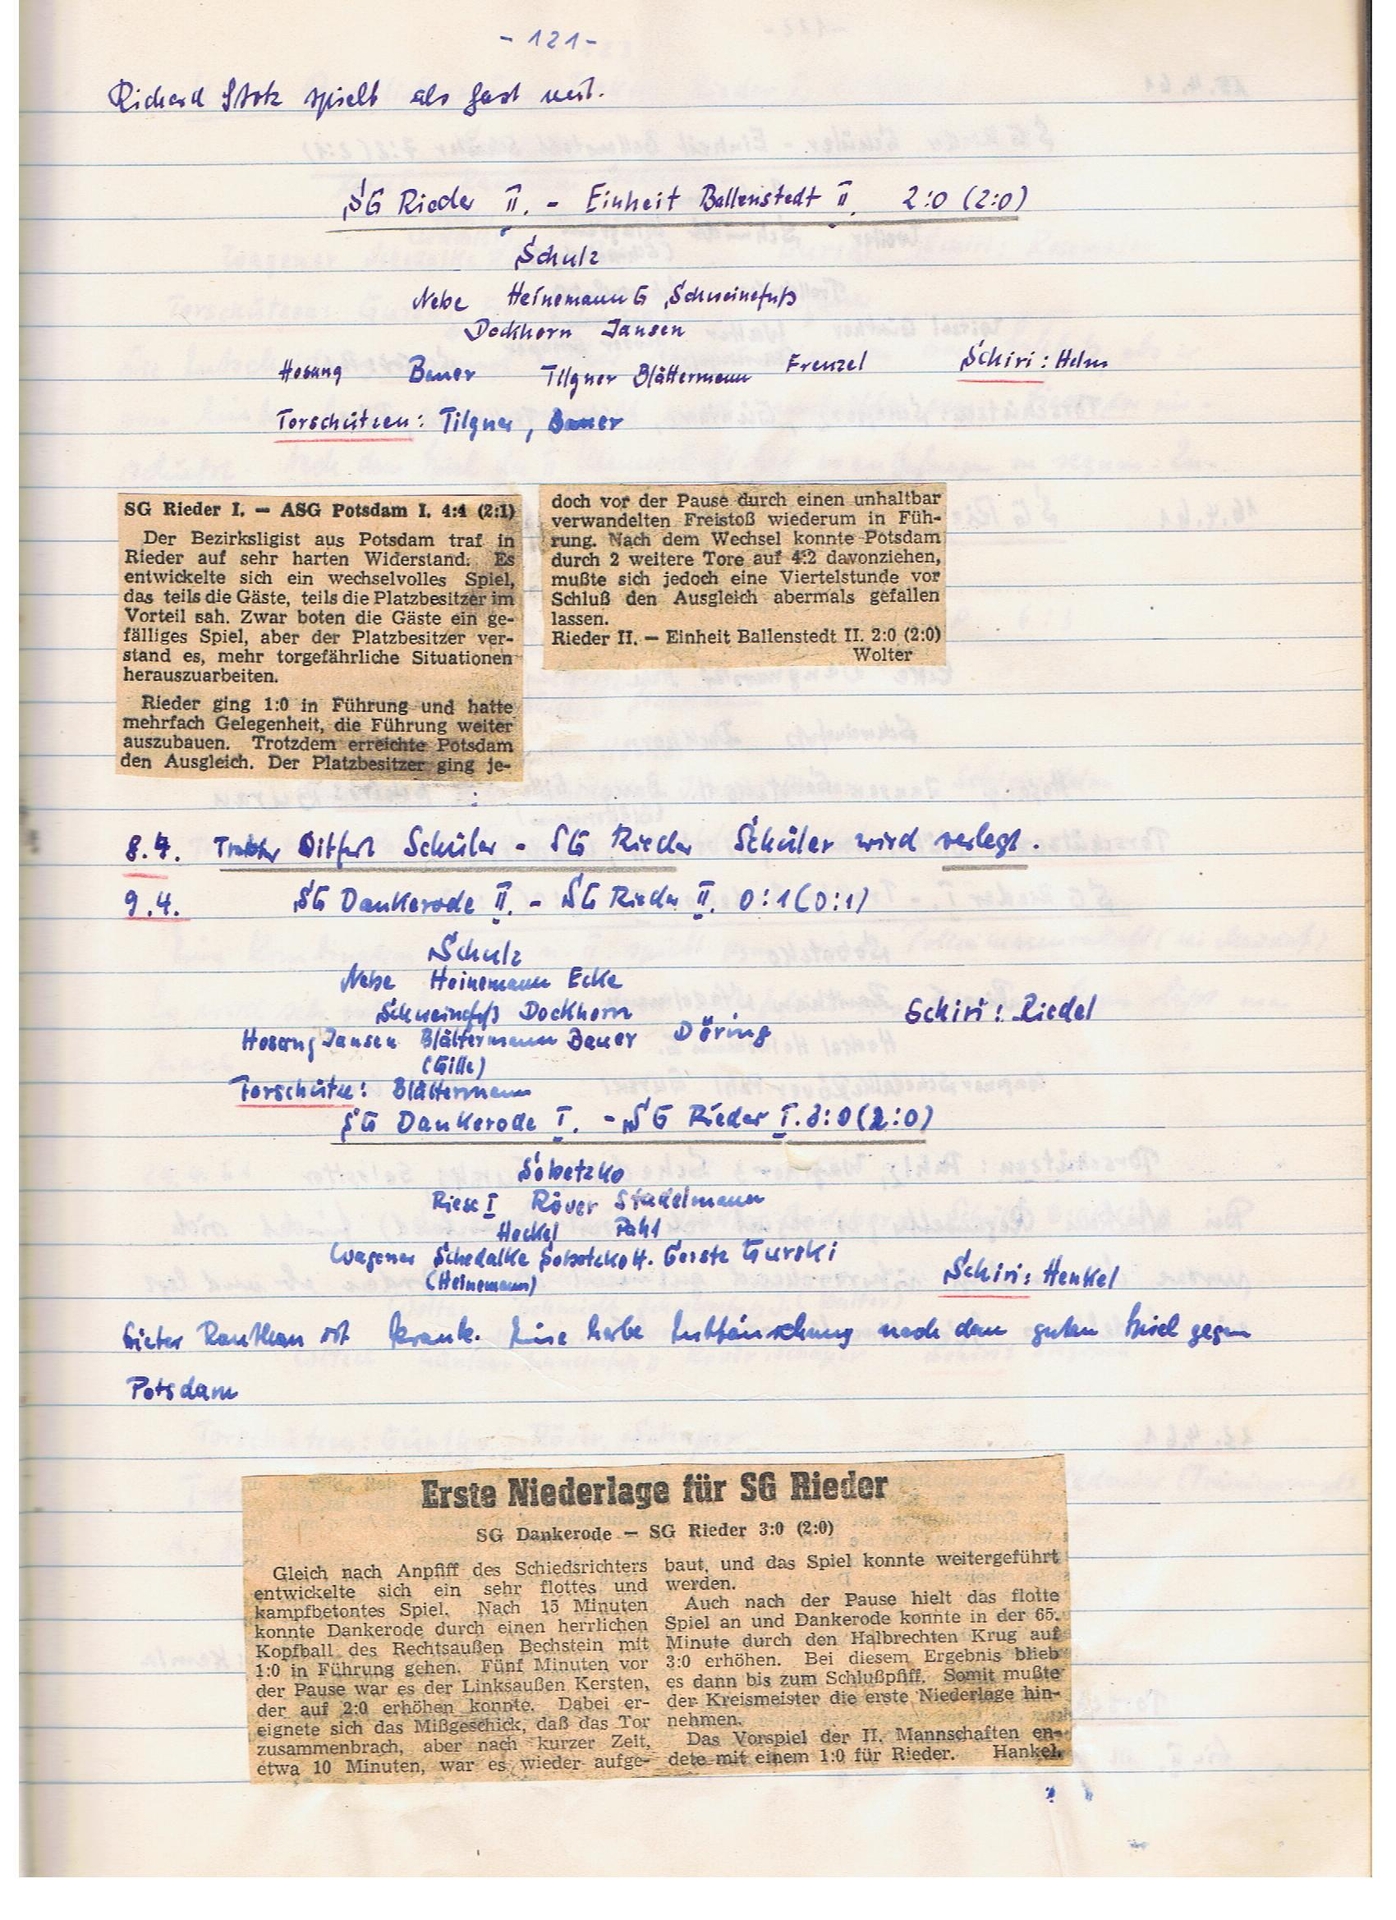 - 121 -
Richard Stotz spielt als Gast mit.
SG Rieder II. - Einheit Ballenstedt II. 2:0 (2:0)
Schulz
Nebe Heinemann G Schweinefuß
Dockhorn Jansen
Hosang Bauer Tilgner Blättermann Frenzel Schiri: Helm
Torschützen: Tilgner, Bauer
SG Rieder I. — ASG Potsdam I. 4:4 (2:1)
Der Bezirksligist aus Potsdam traf in
Rieder auf sehr harten Widerstand. Es
entwickelte sich ein wechselvolles Spiel,
das teils die Gäste, teils die Platzbesitzer im
Vorteil sah. Zwar boten die Gäste ein ge-
fälliges Spiel, aber der Platzbesitzer ver-
stand es, mehr torgefährliche Situationen
herauszuarbeiten.
Rieder ging 1:0 in Führung und hatte
mehrfach Gelegenheit, die Führung weiter
auszubauen. Trotzdem erreichte Potsdam
den Ausgleich. Der Platzbesitzer ging je-
doch vor der Pause durch einen unhaltbar
verwandelten Freistoß wiederum in Füh-
rung. Nach dem Wechsel konnte Potsdam
durch 2 weitere Tore auf 4:2 davonziehen,
mußte sich jedoch eine Viertelstunde vor
Schluß den Ausgleich abermals gefallen
lassen.
Rieder II. — Einheit Ballenstedt II. 2:0 (2:0)
Wolter
8.4. Traktor Ditfurt Schüler - SG Rieder Schüler wird verlegt.
9.4. SG Dankerode II. - SG Rieder II. 0:1 (0:1)
Schulz
Nebe Heinemann Ecke
Schweinefuß Dockhorn Schiri: Riedel
Hosang Jansen Blättermann Bauer Döring
(Gille)
Torschütze: Blättermann
SG Dankerode I. - SG Rieder I. 3:0 (2:0)
Sobetzko
Riese I Röver Stadelmann
Heckel Pahl
Wagener Schedalke Sobotzko H. Gerste Gurski
(Heinemann) Schiri: Henkel
Dieter Ranthan ist krank. Eine herbe Enttäuschung nach dem guten Spiel gegen
Potsdam
Erste Niederlage für SG Rieder
SG Dankerode — SG Rieder 3:0 (2:0)
Gleich nach Anpfiff des Schiedsrichters
entwickelte sich ein sehr flottes und
kampfbetontes Spiel. Nach 15 Minuten
konnte Dankerode durch einen herrlichen
Kopfball des Rechtsaußen Bechstein mit
1:0 in Führung gehen. Fünf Minuten vor
der Pause war es der Linksaußen Kersten,
der auf 2:0 erhöhen konnte. Dabei er-
eignete sich das Mißgeschick, daß das Tor
zusammenbrach, aber nach kurzer Zeit,
etwa 10 Minuten, war es wieder aufge-
baut, und das Spiel konnte weitergeführt
werden.
Auch nach der Pause hielt das flotte
Spiel an und Dankerode konnte in der 65.
Minute durch den Halbrechten Krug auf
3:0 erhöhen. Bei diesem Ergebnis blieb
es dann bis zum Schlußpfiff. Somit mußte
der Kreismeister die erste Niederlage hin-
nehmen.
Das Vorspiel der II. Mannschaften en-
dete mit einem 1:0 für Rieder. Hankel.